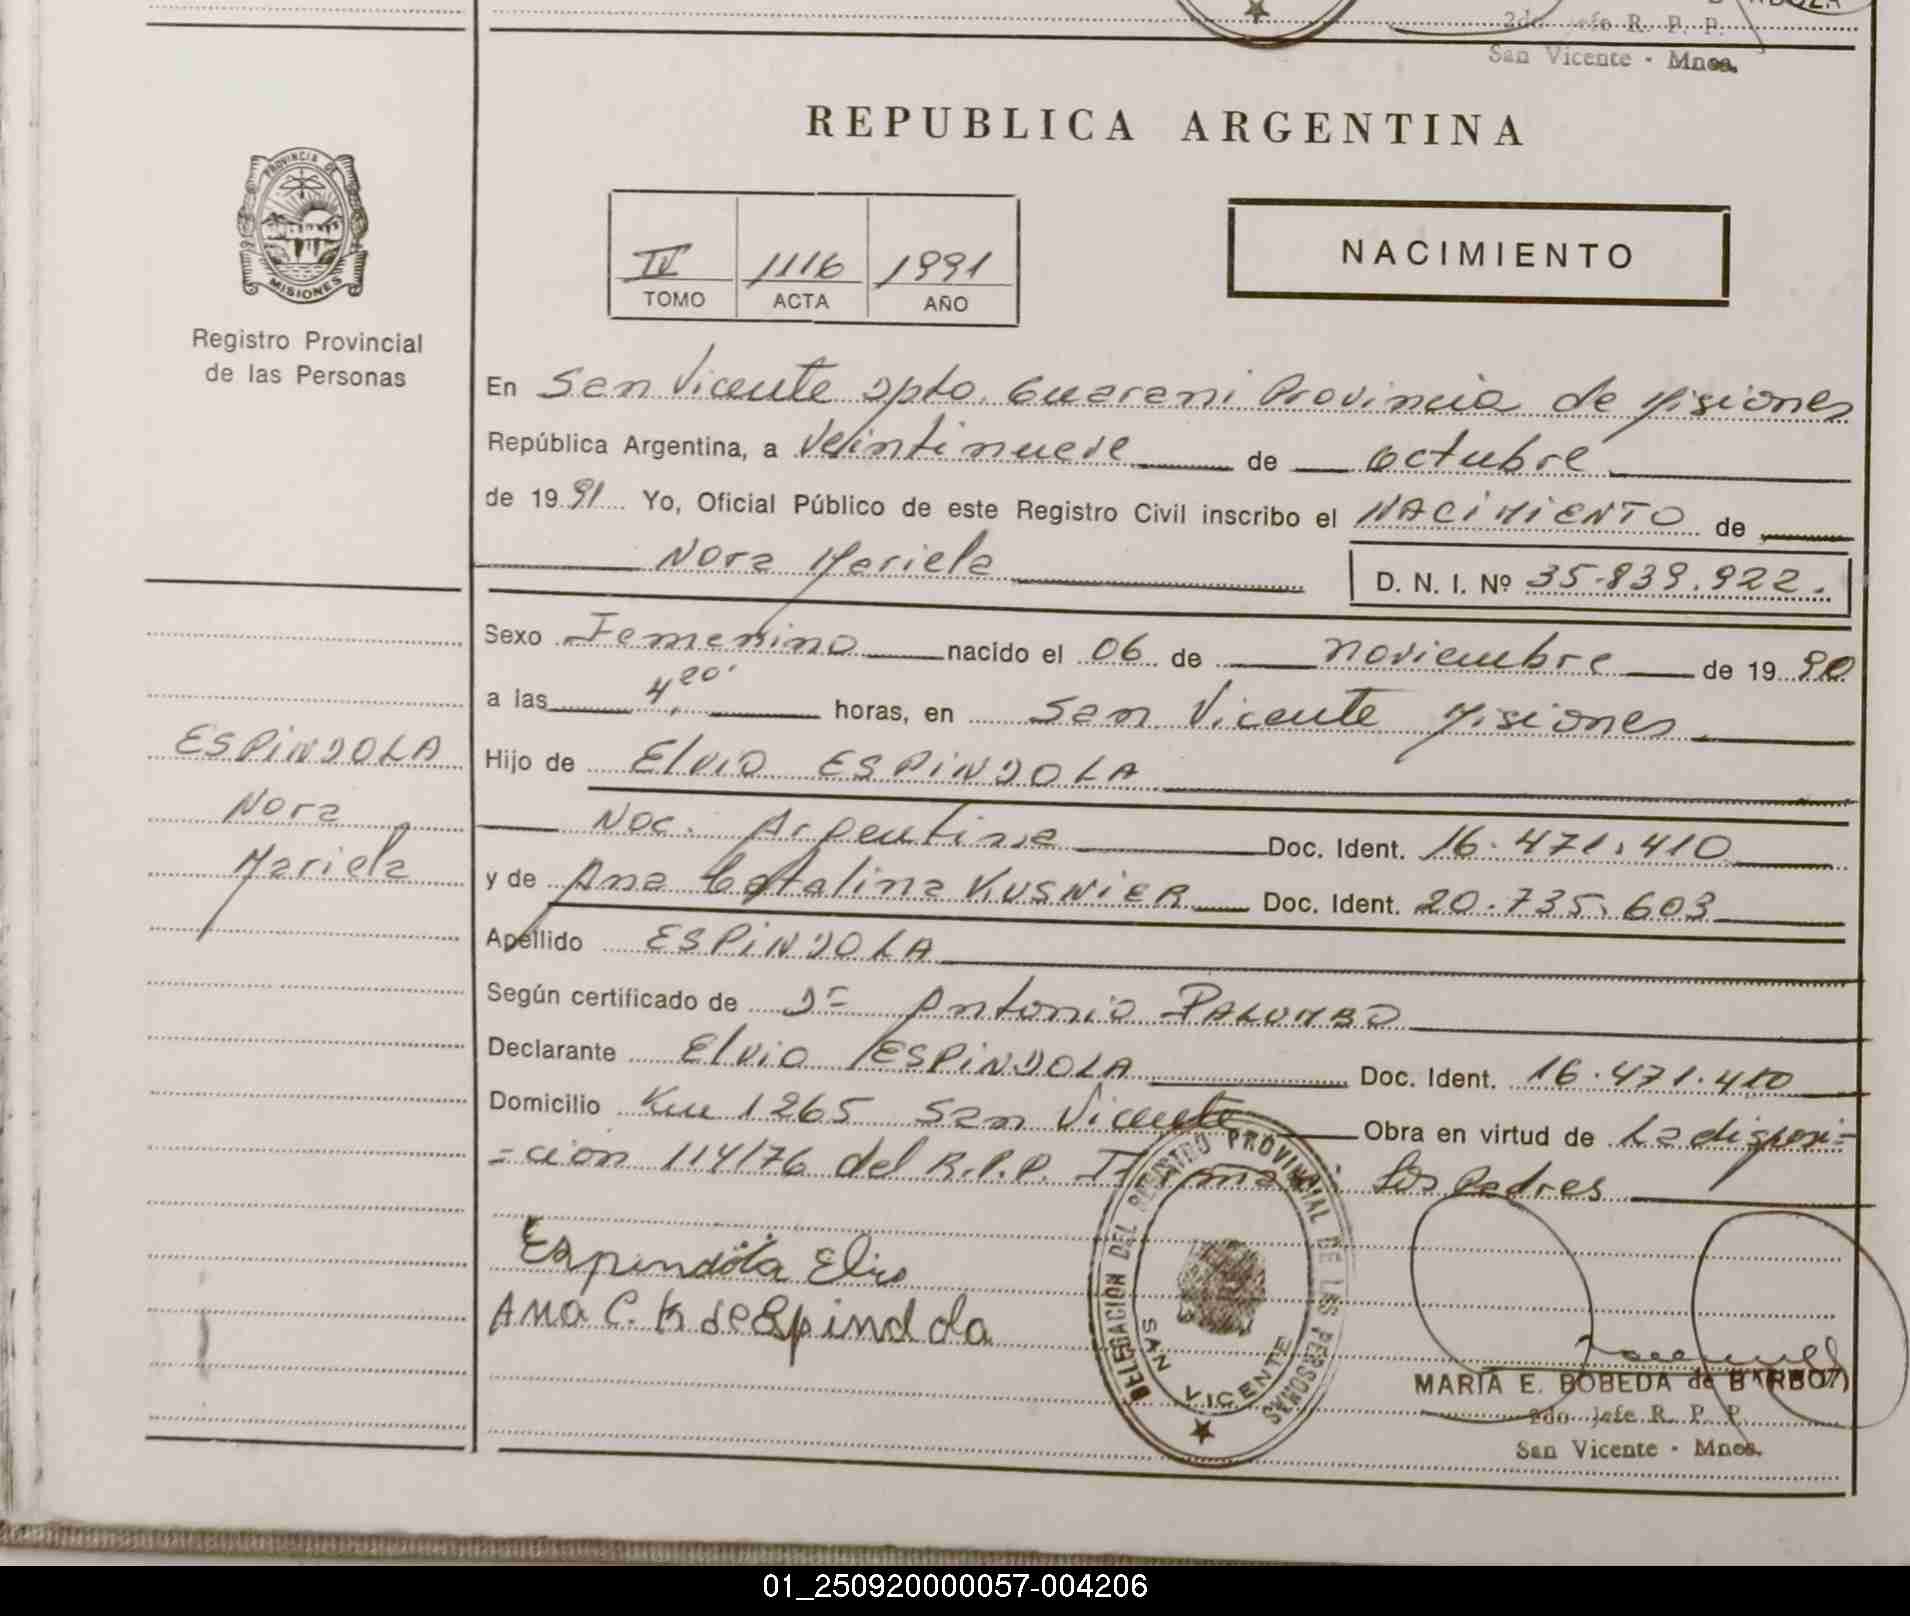 2do Jefe R. P. P.
San Vicente - Mnes.
REPUBLICA ARGENTINA
PROVINCIA DE
MISIONES
Registro Provincial
de las Personas
IV 1116 1991
TOMO ACTA AÑO
NACIMIENTO
En San Vicente Dpto. Guarani Provincia de Misiones
República Argentina, a Veintinueve de octubre
de 1991 Yo, Oficial Público de este Registro Civil inscribo el NACIMIENTO de
Nora Mariela D. N. I. Nº 35.839.922.
Sexo Femenino nacido el 06 de noviembre de 1990
a las 4,20' horas, en San Vicente Misiones
Hijo de Elvio ESPINDOLA
Nac. Argentina Doc. Ident. 16.471.410
y de Ana Catalina KUSNIER Doc. Ident. 20.735.603
Apellido ESPINDOLA
Según certificado de Dr Antonio PALUMBO
Declarante Elvio ESPINDOLA Doc. Ident. 16.471.410
Domicilio Km 1265 San Vicente Obra en virtud de La disposi=
=cion 114/76 del R.P.P. Firman Los Padres
ESPINDOLA
Nora
Mariela
Espindola Elvio
Ana C. K de Espindola
DELEGACION DEL REGISTRO PROVINCIAL DE LAS PERSONAS
SAN VICENTE
MARIA E. BOBEDA de BARBOZA
2do Jefe R. P. P.
San Vicente - Mnes.
01_250920000057-004206